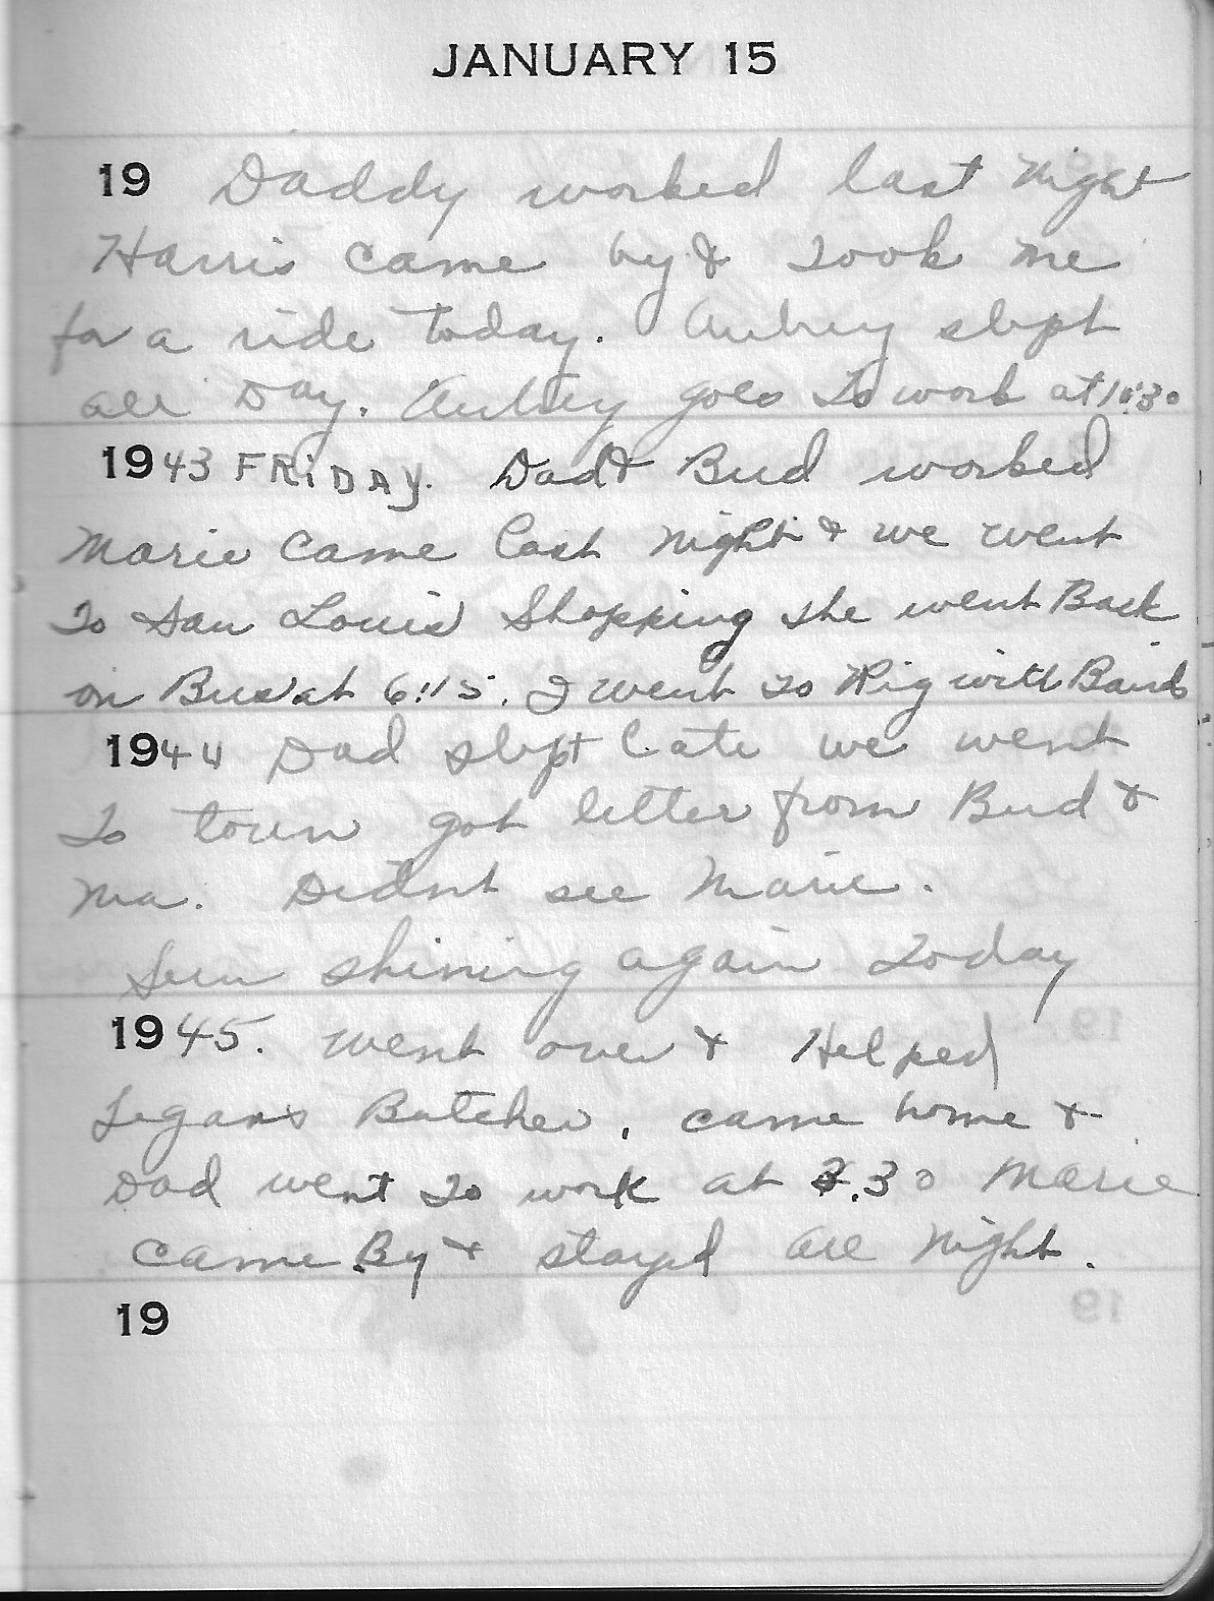 JANUARY 15
19 Daddy worked last Night
Harris came by & Took me
for a ride today. Aubrey slept
all Day. Aubrey goes To work at 10:30
1943 FRiDAY. Dad & Bud worked
Marie Came last Night & we went
To San Louis Shopping she went Back
on Bus at 6:15. I went To Rig with Baird
1944 Dad slept Late we went
To town got letter from Bud &
Ma. Didn't see Marie.
Sun shining again Today
1945. Went over & Helped
Legans Butcher, came home &
Dad went To work at 3.30 Marie
came By & stayed all Night.
19